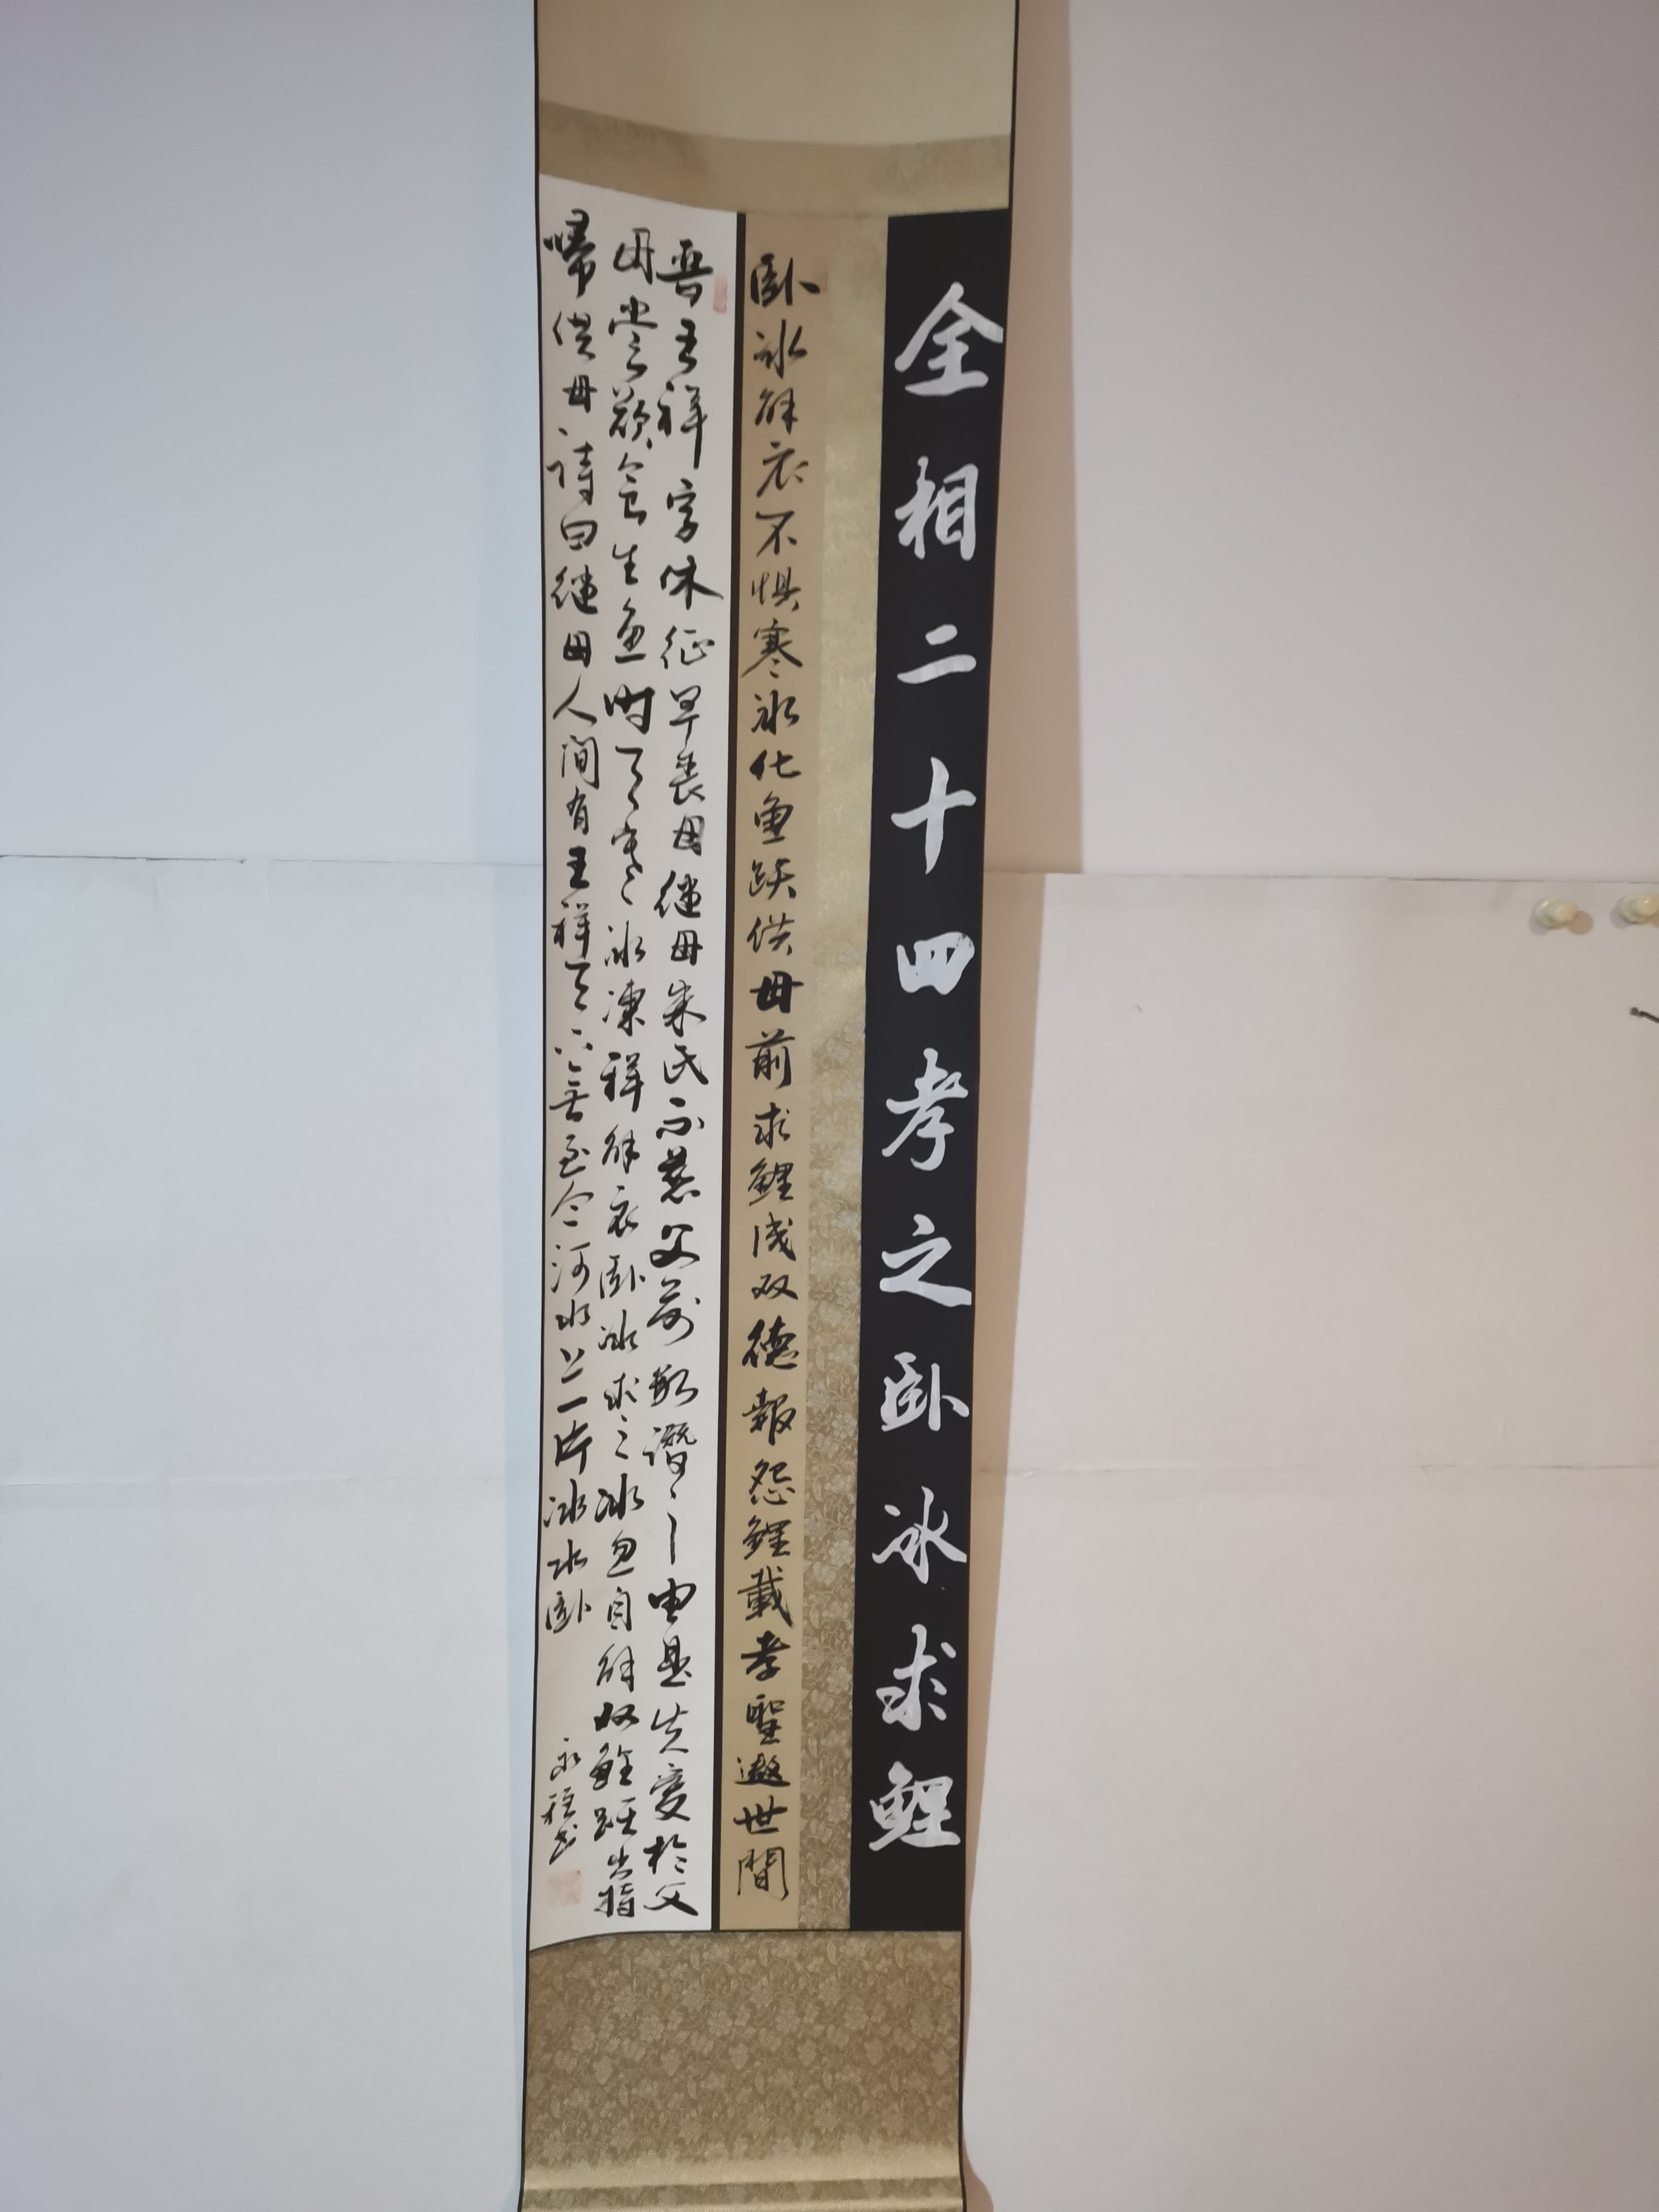 全相二十四孝之卧冰求鲤
卧冰解衣不惧寒冰化鱼跃供母前求鲤成双德報怨鲤載孝聖遨世間
晋王祥字休征早丧母继母朱氏不慈父前数谮之由是失爱於父
母尝欲食生鱼时天寒冰凍祥解衣卧冰求之冰忽自解双鲤跃出持
归供母诗曰继母人间有王祥天下无至今河水上一片冰水卧